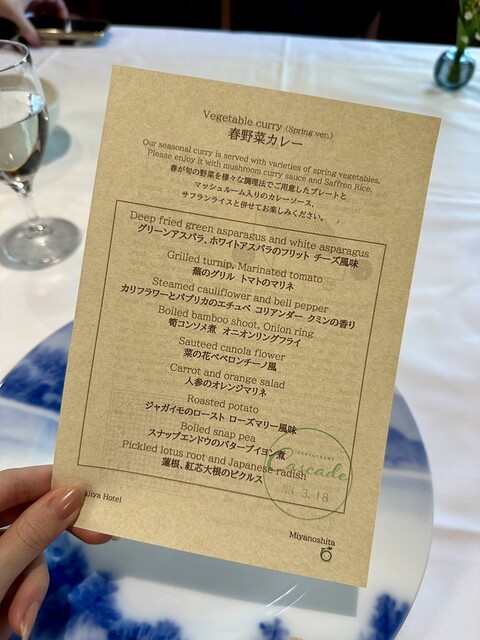 Vegetable curry (Spring ver.)
春野菜カレー
Our seasonal curry is served with varieties of spring vegetables,
Please enjoy it with mushroom curry sauce and Saffron Rice.
春が旬の野菜を様々な調理法でご用意したプレートと
マッシュルーム入りのカレーソース、
サフランライスと併せてお楽しみください。
Deep fried green asparagus and white asparagus
グリーンアスパラ、ホワイトアスパラのフリット チーズ風味
Grilled turnip, Marinated tomato
蕪のグリル トマトのマリネ
Steamed cauliflower and bell pepper
カリフラワーとパプリカのエチュベ コリアンダー クミンの香り
Boiled bamboo shoot, Onion ring
筍コンソメ煮 オニオンリングフライ
Sauteed canola flower
菜の花ペペロンチーノ風
Carrot and orange salad
人参のオレンジマリネ
Roasted potato
ジャガイモのロースト ローズマリー風味
Boiled snap pea
スナップエンドウのバターブイヨン煮
Pickled lotus root and Japanese radish
蓮根、紅芯大根のピクルス
RESTAURANT
Cascade
3.18
jiya Hotel
Miyanoshita